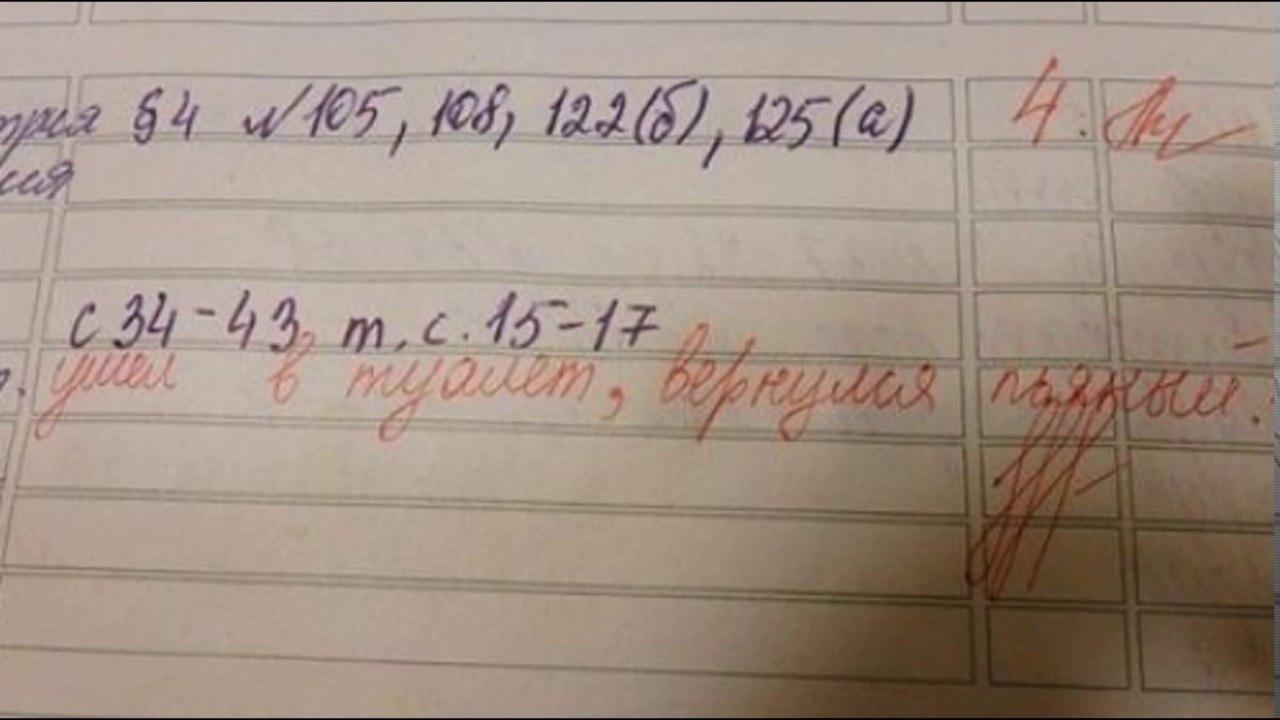 §4 №105, 108, 122(б), 125(а) 4.
с 34-43, т. с. 15-17
ушел в туалет, вернулся пьяный.